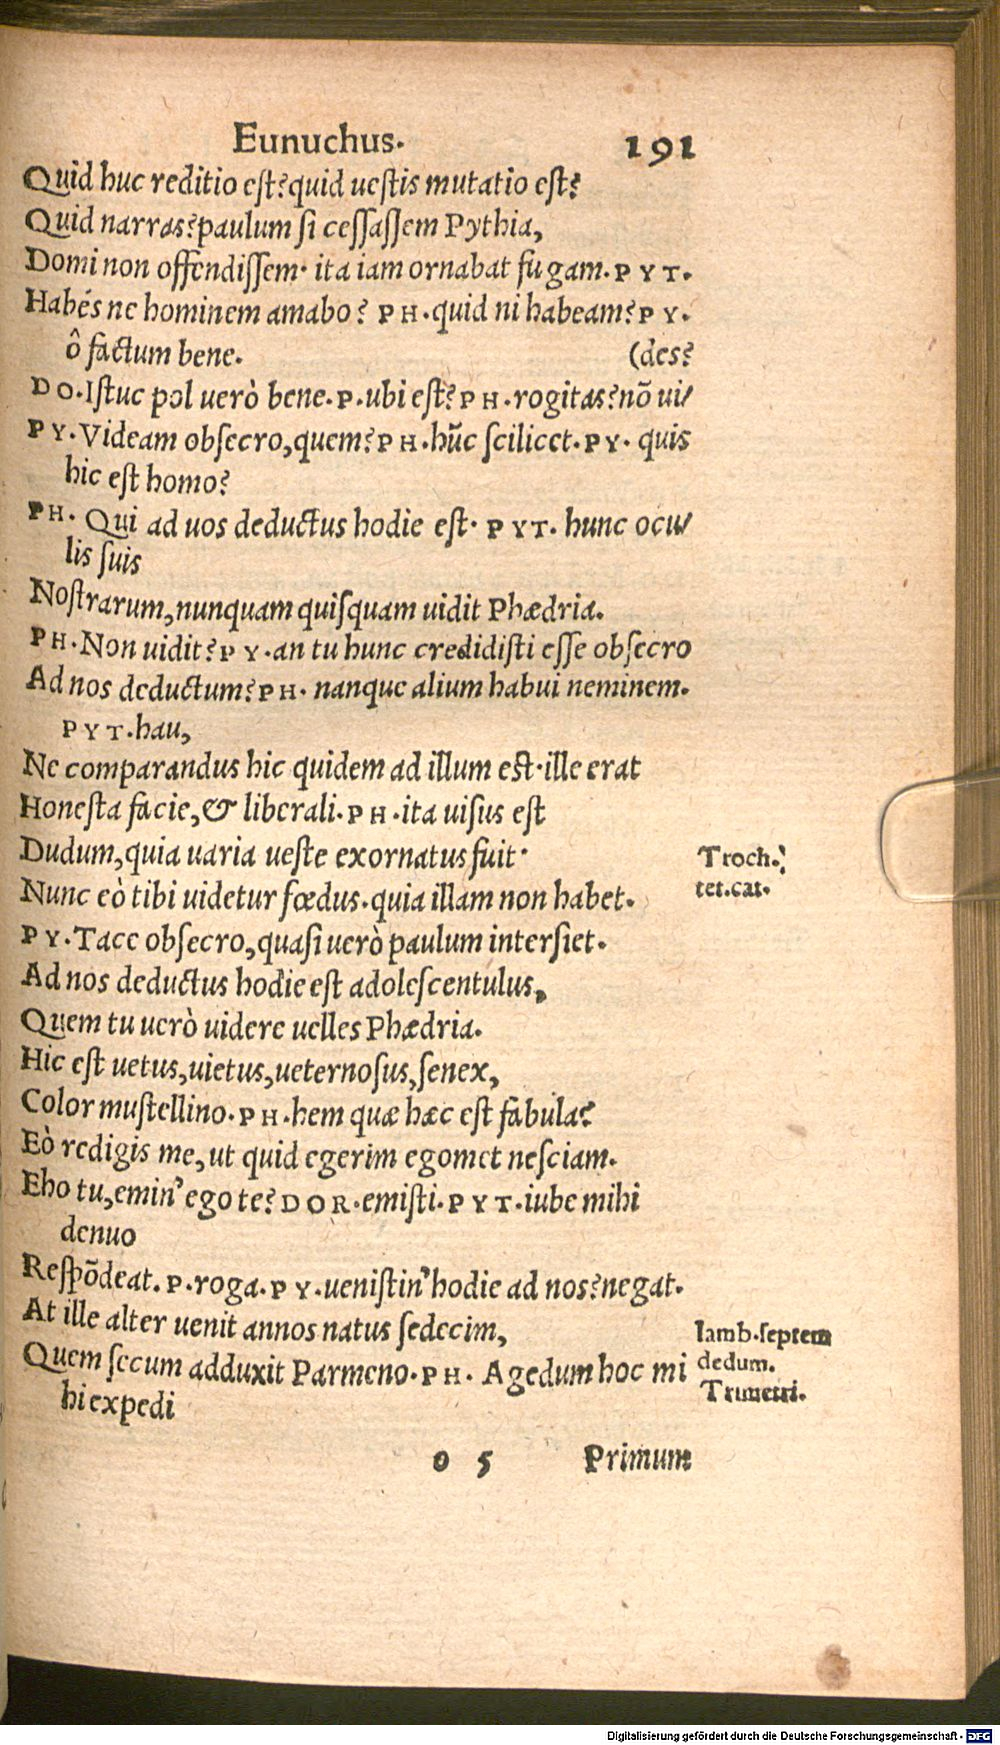 Eunuchus. 191
Quid huc reditio est? quid uestis mutatio est?
Quid narras? paulum si cessassem Pythia,
Domi non offendissem. ita iam ornabat fugam. PYT.
Habés ne hominem amabo? PH. quid ni habeam? PY.
ô factum bene. (des?
DO. Istuc pol uerò bene. P. ubi est? PH. rogitas? nō ui/
PY. Videam obsecro, quem? PH. hūc scilicet. PY. quis
hic est homo?
PH. Qui ad uos deductus hodie est. PYT. hunc ocu/
lis suis
Nostrarum, nunquam quisquam uidit Phædria.
PH. Non uidit? PY. an tu hunc credidisti esse obsecro
Ad nos deductum? PH. nanque alium habui neminem.
PYT. hau,
Ne comparandus hic quidem ad illum est. ille erat
Honesta facie, & liberali. PH. ita uisus est
Dudum, quia uaria ueste exornatus fuit.
Troch.
tet. cat.
Nunc eò tibi uidetur fœdus. quia illam non habet.
PY. Tace obsecro, quasi uerò paulum intersiet.
Ad nos deductus hodie est adolescentulus,
Quem tu uerò uidere uelles Phædria.
Hic est uetus, uietus, ueternosus, senex,
Color mustellino. PH. hem quæ hæc est fabula?
Eò redigis me, ut quid egerim egomet nesciam.
Eho tu, emin' ego te? DOR. emisti. PYT. iube mihi
denuo
Respōdeat. P. roga. PY. uenistin' hodie ad nos? negat.
At ille alter uenit annos natus sedecim,
Iamb. septem
Quem secum adduxit Parmeno. PH. Agedum hoc mi
dedum.
Trimetri.
hi expedi
o 5 Primum
Digitalisierung gefördert durch die Deutsche Forschungsgemeinschaft - DFG